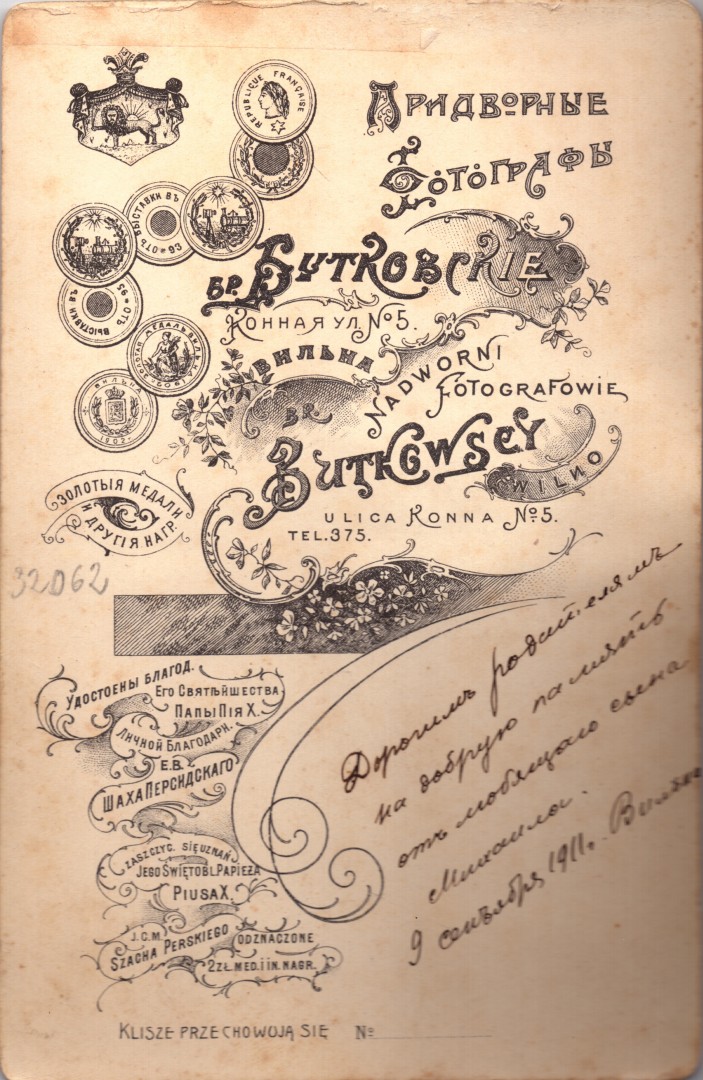 Придворные
Фотографы
REPUBLIQUE FRANÇAISE
ВЫСТАВКИ ВЪ
ОТЪ 93
Бр. Бутковскіе
Конная ул. № 5.
Вильна
ВЫСТАВКИ ВЪ
93 ОТЪ
NADWORNI
FOTOGRAFOWIE
BR.
BUTKOWSCY
WILNO
ВИЛЬНА
1902
ULICA KONNA № 5.
TEL. 375.
ЗОЛОТЫЯ МЕДАЛИ
И ДРУГІЯ НАГР.
32062
Удостоены благод.
Его Святѣйшества
Папы Пія X.
Личной Благодарн.
Е.В.
Шаха Персидскаго
ZASZCZYC. SIĘ UZNAŃ
JEGO ŚWIĘTOBL. PAPIEŻA
PIUSA X.
J.C.M.
SZACHA PERSKIEGO
ODZNACZONE
2 ZŁ. MED. I IN. NAGR.
Дорогимъ родителямъ
на добрую память
отъ любящаго сына
Михаила.
9 сентября 1911 г. Вильна
KLISZE PRZECHOWOJĄ SIĘ №